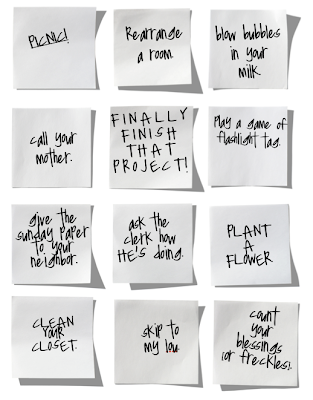 PICNIC!
Rearrange
a room.
blow bubbles
in your
milk
call your
mother.
FINALLY
FINISH
THAT
PROJECT!
Play a game of
flashlight tag.
give the
sunday paper
to your
neighbor.
ask the
clerk how
HE'S doing.
PLANT
A
FLOWER
CLEAN
YOUR
CLOSET.
skip to
my lou.
count
your
blessings
(or freckles).